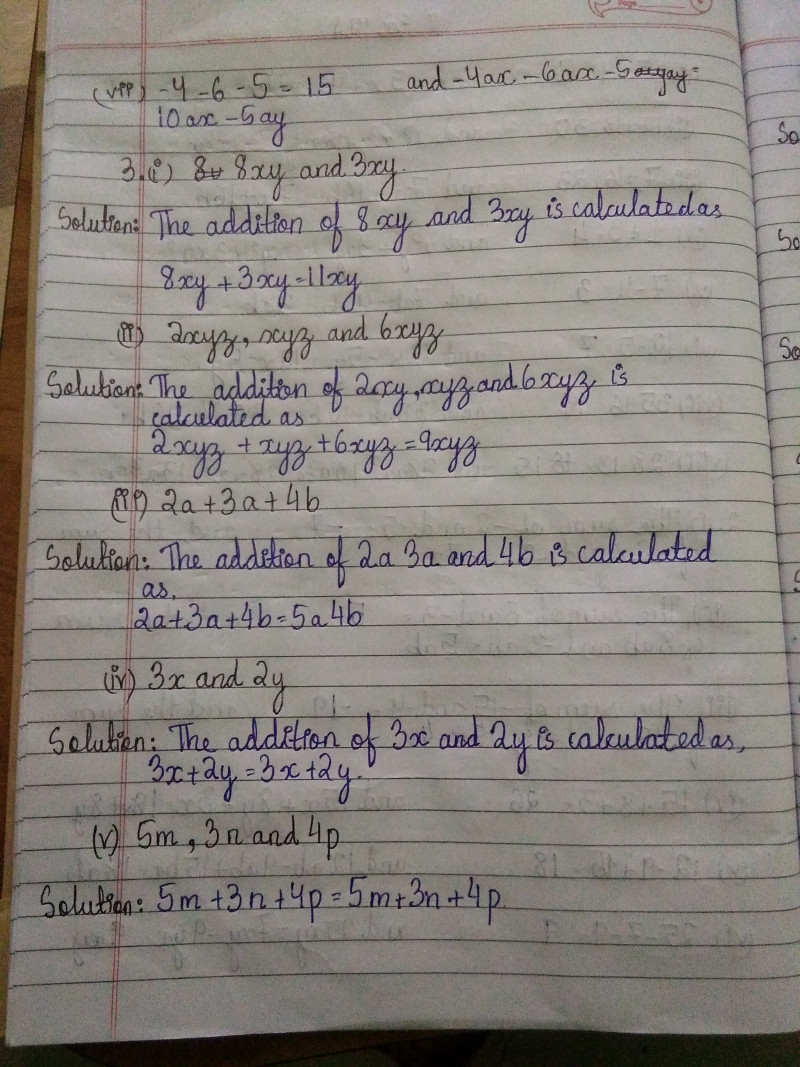 (vii) -4 -6 -5 = 15 and -4ax - 6ax - 5ay =
10ax - 5ay
3.(i) 8xy and 3xy.
Solution: The addition of 8xy and 3xy is calculated as
8xy + 3xy = 11xy
(ii) 2xyz, xyz and 6xyz
Solution: The addition of 2xy, xyz and 6xyz is
calculated as
2xyz + xyz + 6xyz = 9xyz
(iii) 2a + 3a + 4b
Solution: The addition of 2a 3a and 4b is calculated
as,
2a+3a+4b=5a4b
(iv) 3x and 2y
Solution: The addition of 3x and 2y is calculated as,
3x+2y=3x+2y.
(v) 5m, 3n and 4p
Solution: 5m+3n+4p=5m+3n+4p.
So
So
So